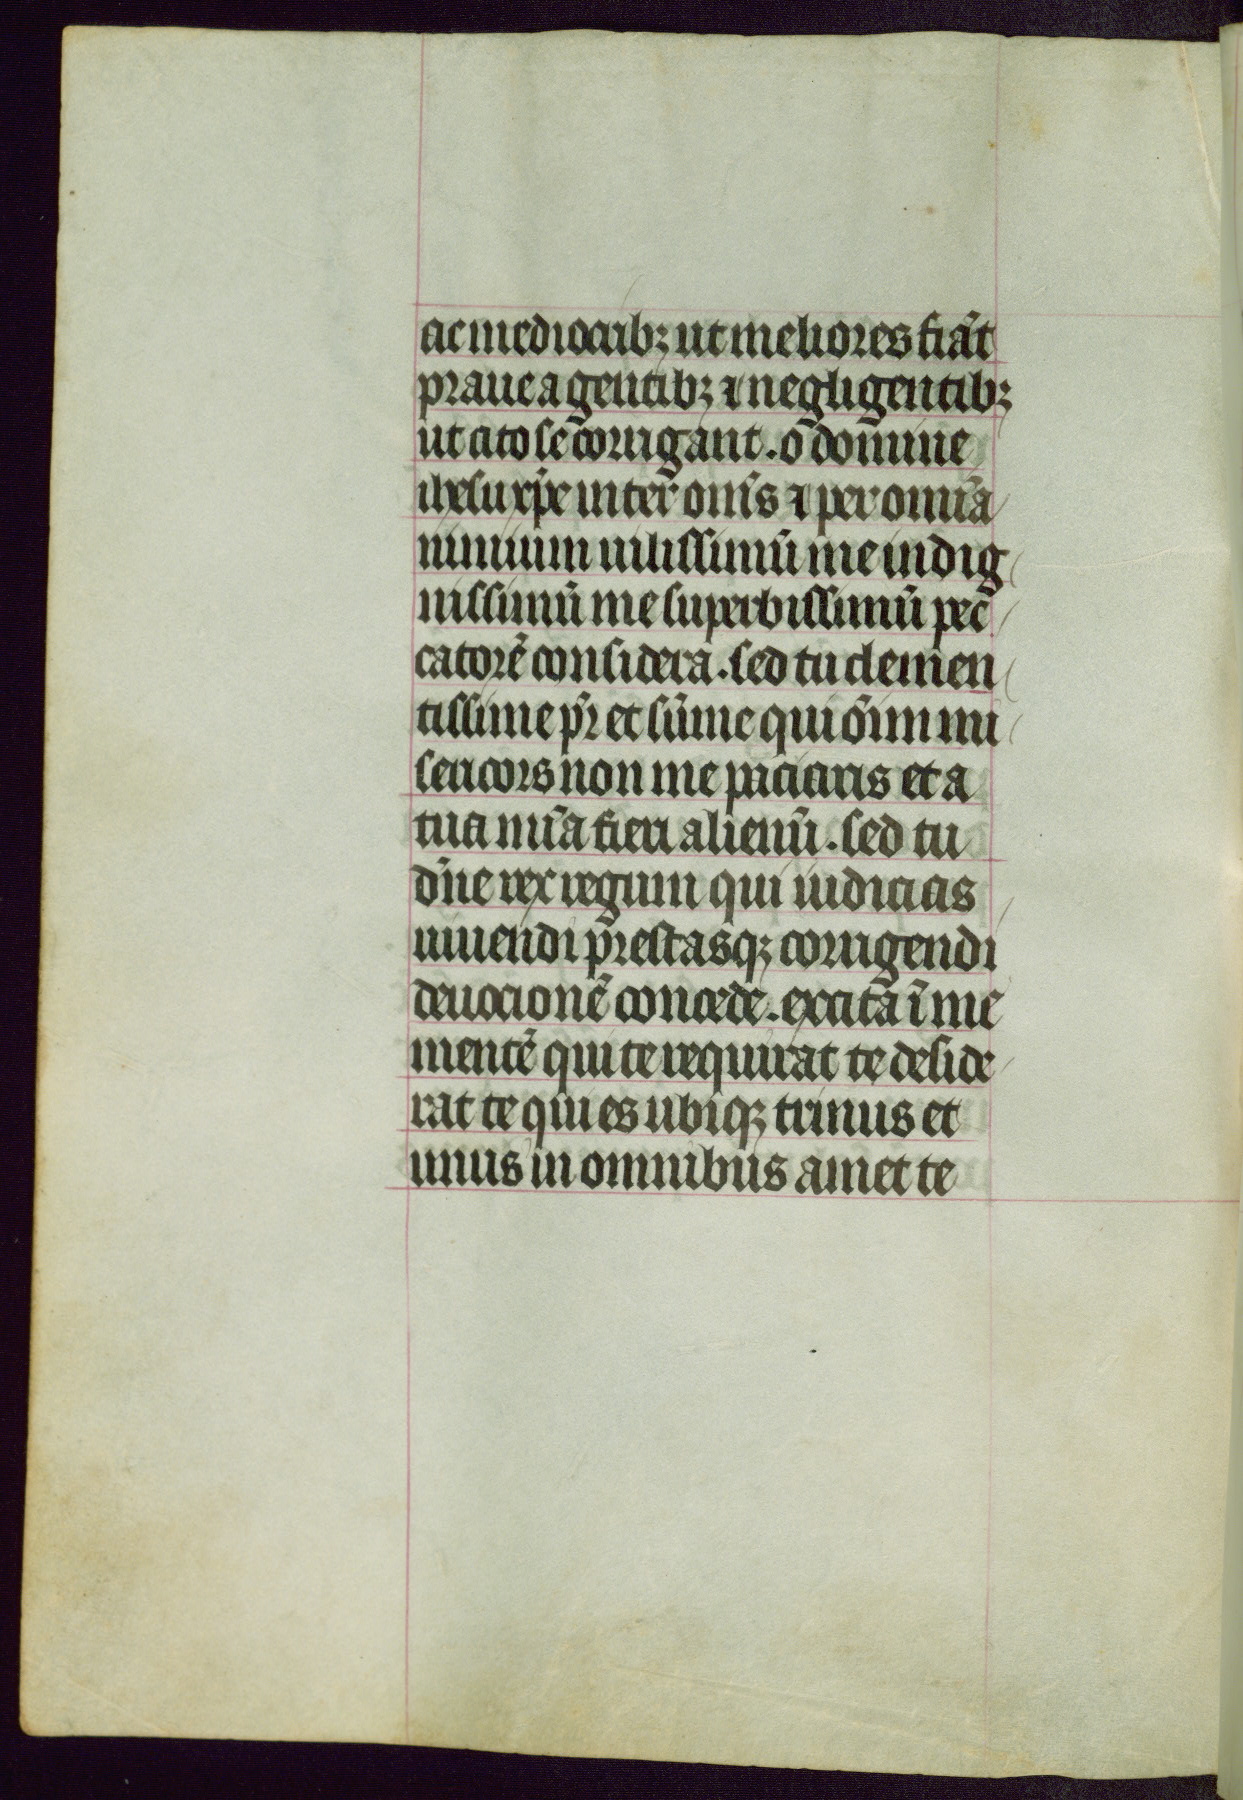 ac mediocribꝫ ut meliores fiāt
praue agentibꝫ ⁊ negligentibꝫ
ut cito se corrigant . o domine
ihesu xp̄e inter om̄s ⁊ per om̄ia
nimium uilissimū me indig
nissimū me superbissimū pec
catorē considera . sed tu clemen
tissime pr̄ et sūme qui om̄i mi
sericors non me paciaris et a
tua
fieri alienū . sed tu
dn̄e rex regum qui iudicias
uiuendi prestasqꝫ corrigendi
deuocionē concede . excita ī me
mentē qui te requirat te deside
rat te qui es ubiqꝫ trinus et
unus in omnibus amet te